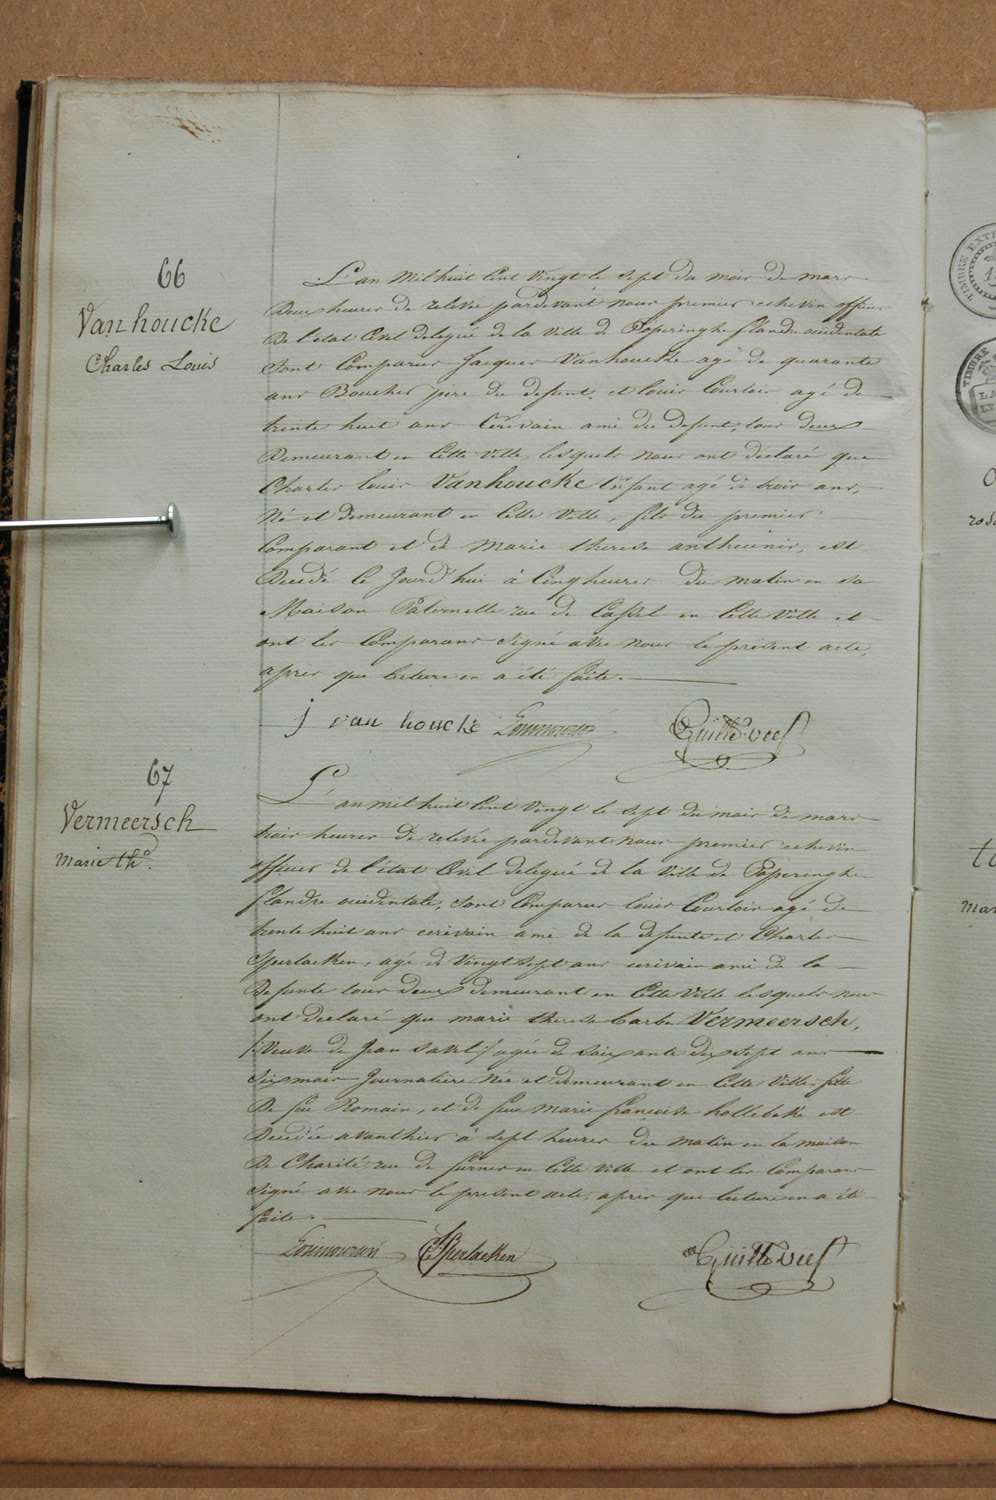 66
Vanhoucke
Charles Louis
L'an Mil huit Cent Vingt le sept du mois de mars
Deux heures de relevée pardevant nous premier echevin officier
De l'etat Civil delegué de la Ville de Poperinghe flandre occidentale
Sont Comparus Jacques Vanhoucke agé de quarante
ans Boucher pere du defunt, et louis Courtois agé de
trente huit ans Ecrivain ami du defunt, tous deux
Demeurant en Cette Ville lesquels nous ont déclaré que
Charles louis Vanhoucke Enfant agé de trois ans,
Né et demeurant en Cette Ville, fils du premier
Comparant et de Marie therese antheunis, est
Decedé Ce Jourd'hui à Cinq heures du matin en sa
Maison Paternelle rue de Cassel en Cette Ville et
ont les Comparans Signé avec nous le présent acte,
apres que lecture en a été faite.
j van houcke
67
Vermeersch
Marie the
L'an mil huit Cent Vingt le sept du mois de mars
trois heures de relevée pardevant nous premier echevin
officier de l'état Civil delegué de la Ville de Poperinghe
flandre occidentale, sont Comparus louis Courtois agé de
trente huit ans ecrivain ami de la defunte et Charles
Sperlaeken, agé de Vingt sept ans ecrivain ami de la
Defunte tous deux demeurant en Cette Ville lesquels nous
ont declaré que marie therese barbe Vermeersch,
Veuve de Jean agée de soixante dix sept ans
Six mois Journaliere Née et demeurant en Cette Ville fille
De feu Romain, et de feue Marie françoise hollebeke est
Decedée avanthier à sept heures du matin en la maison
De Charité rue de furnes en Cette Ville et ont les Comparans
Signé avec nous le présent acte, apres que lecture en a été
faite.
Sperlaeken
TIMBRE
TIMBRE